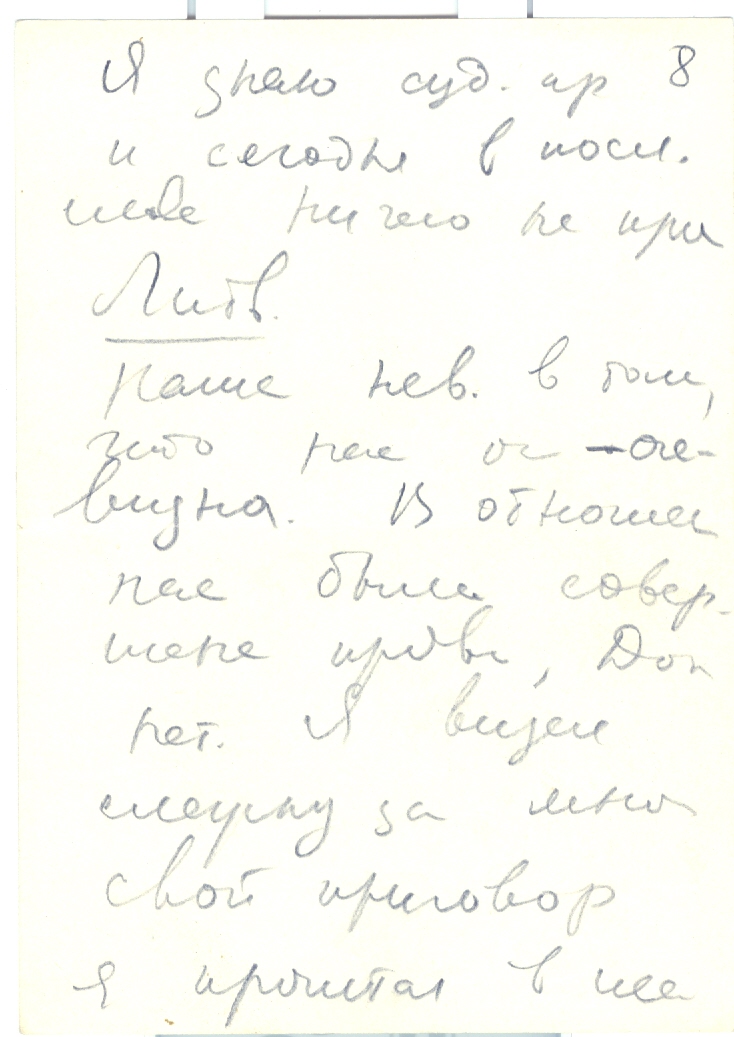 Я знаю суд. пр 8
и сегодня в посл.
ничего не при
Литв.
наше нев. в том,
что нас оче-
видна. В отноше
нас были совер-
шена пров, Док
нет. Я видел
слежку за мно
свой приговор
я прочитал в